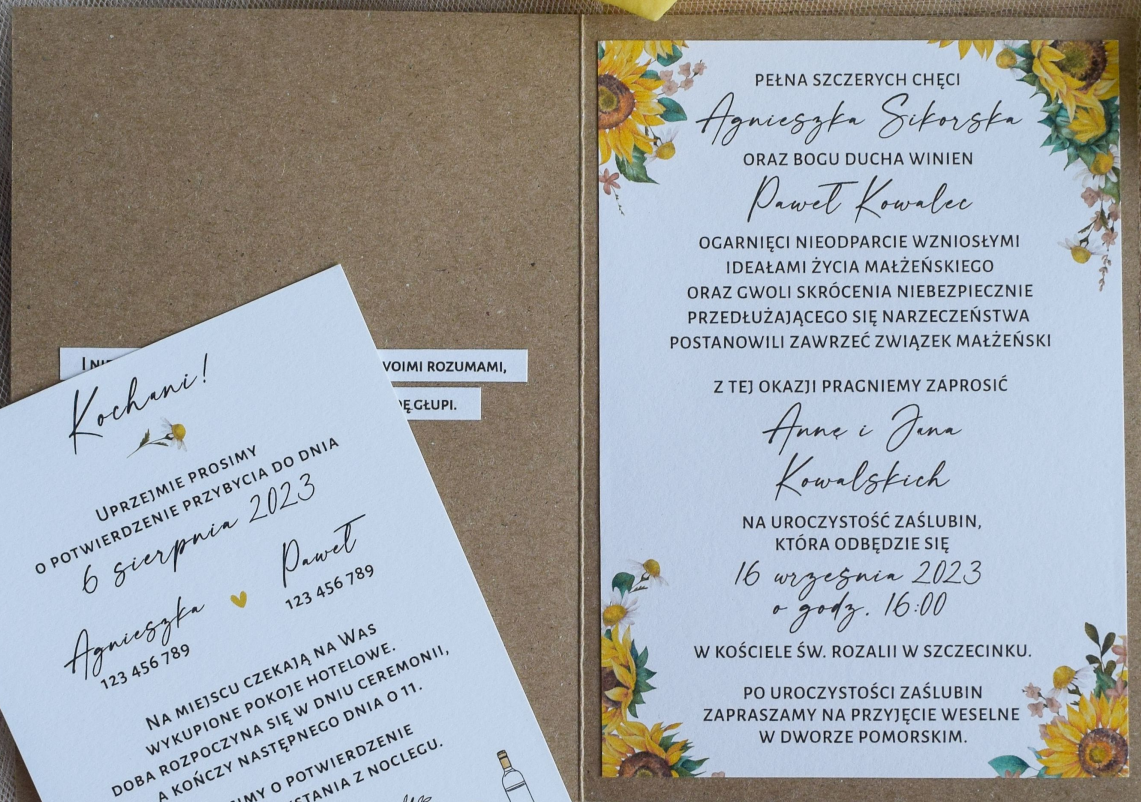 I NIE
WOIMI ROZUMAMI,
GŁUPI.
Kochani!
UPRZEJMIE PROSIMY
O POTWIERDZENIE PRZYBYCIA DO DNIA
6 sierpnia 2023
Agnieszka
123 456 789
Paweł
123 456 789
NA MIEJSCU CZEKAJĄ NA WAS
WYKUPIONE POKOJE HOTELOWE.
DOBA ROZPOCZYNA SIĘ W DNIU CEREMONII,
A KOŃCZY NASTĘPNEGO DNIA O 11.
SIMY O POTWIERDZENIE
STANIA Z NOCLEGU.
PEŁNA SZCZERYCH CHĘCI
Agnieszka Sikorska
ORAZ BOGU DUCHA WINIEN
Paweł Kowalec
OGARNIĘCI NIEODPARCIE WZNIOSŁYMI
IDEAŁAMI ŻYCIA MAŁŻEŃSKIEGO
ORAZ GWOLI SKRÓCENIA NIEBEZPIECZNIE
PRZEDŁUŻAJĄCEGO SIĘ NARZECZEŃSTWA
POSTANOWILI ZAWRZEĆ ZWIĄZEK MAŁŻEŃSKI
Z TEJ OKAZJI PRAGNIEMY ZAPROSIĆ
Annę i Jana
Kowalskich
NA UROCZYSTOŚĆ ZAŚLUBIN,
KTÓRA ODBĘDZIE SIĘ
16 września 2023
o godz. 16:00
W KOŚCIELE ŚW. ROZALII W SZCZECINKU.
PO UROCZYSTOŚCI ZAŚLUBIN
ZAPRASZAMY NA PRZYJĘCIE WESELNE
W DWORZE POMORSKIM.